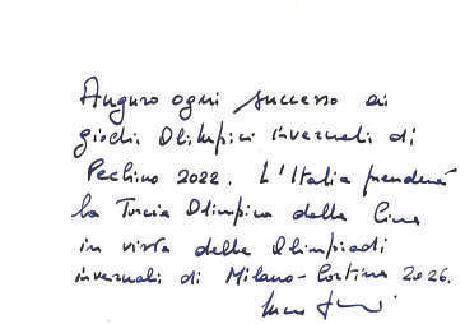 Auguro ogni successo ai
giochi Olimpici invernali di
Pechino 2022. L'Italia prenderà
la Torcia Olimpica dalla Cina
in vista delle Olimpiadi
invernali di Milano-Cortina 2026.